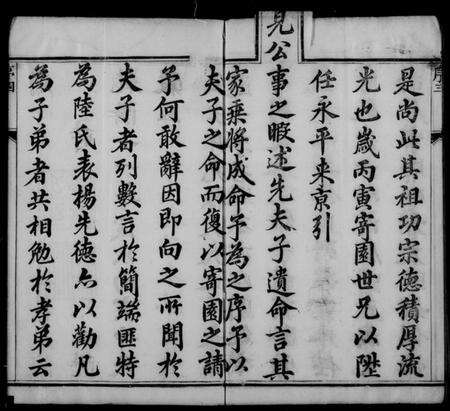 是尚此其祖功宗德積厚流
光也歲丙寅寄園世兄以陞
任永平来京引
見公事之暇述先夫子遺命言其
家乘将成命予為之序予以
夫子之命而復以寄園之請
予何敢辭因即向之所聞於
夫子者列數言於簡端匪特
為陸氏表揚先德亦以勸凡
為子弟者共相勉於孝弟云